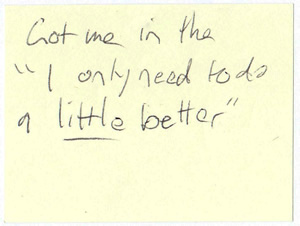 Got me in the
"I only need to do
a little better"